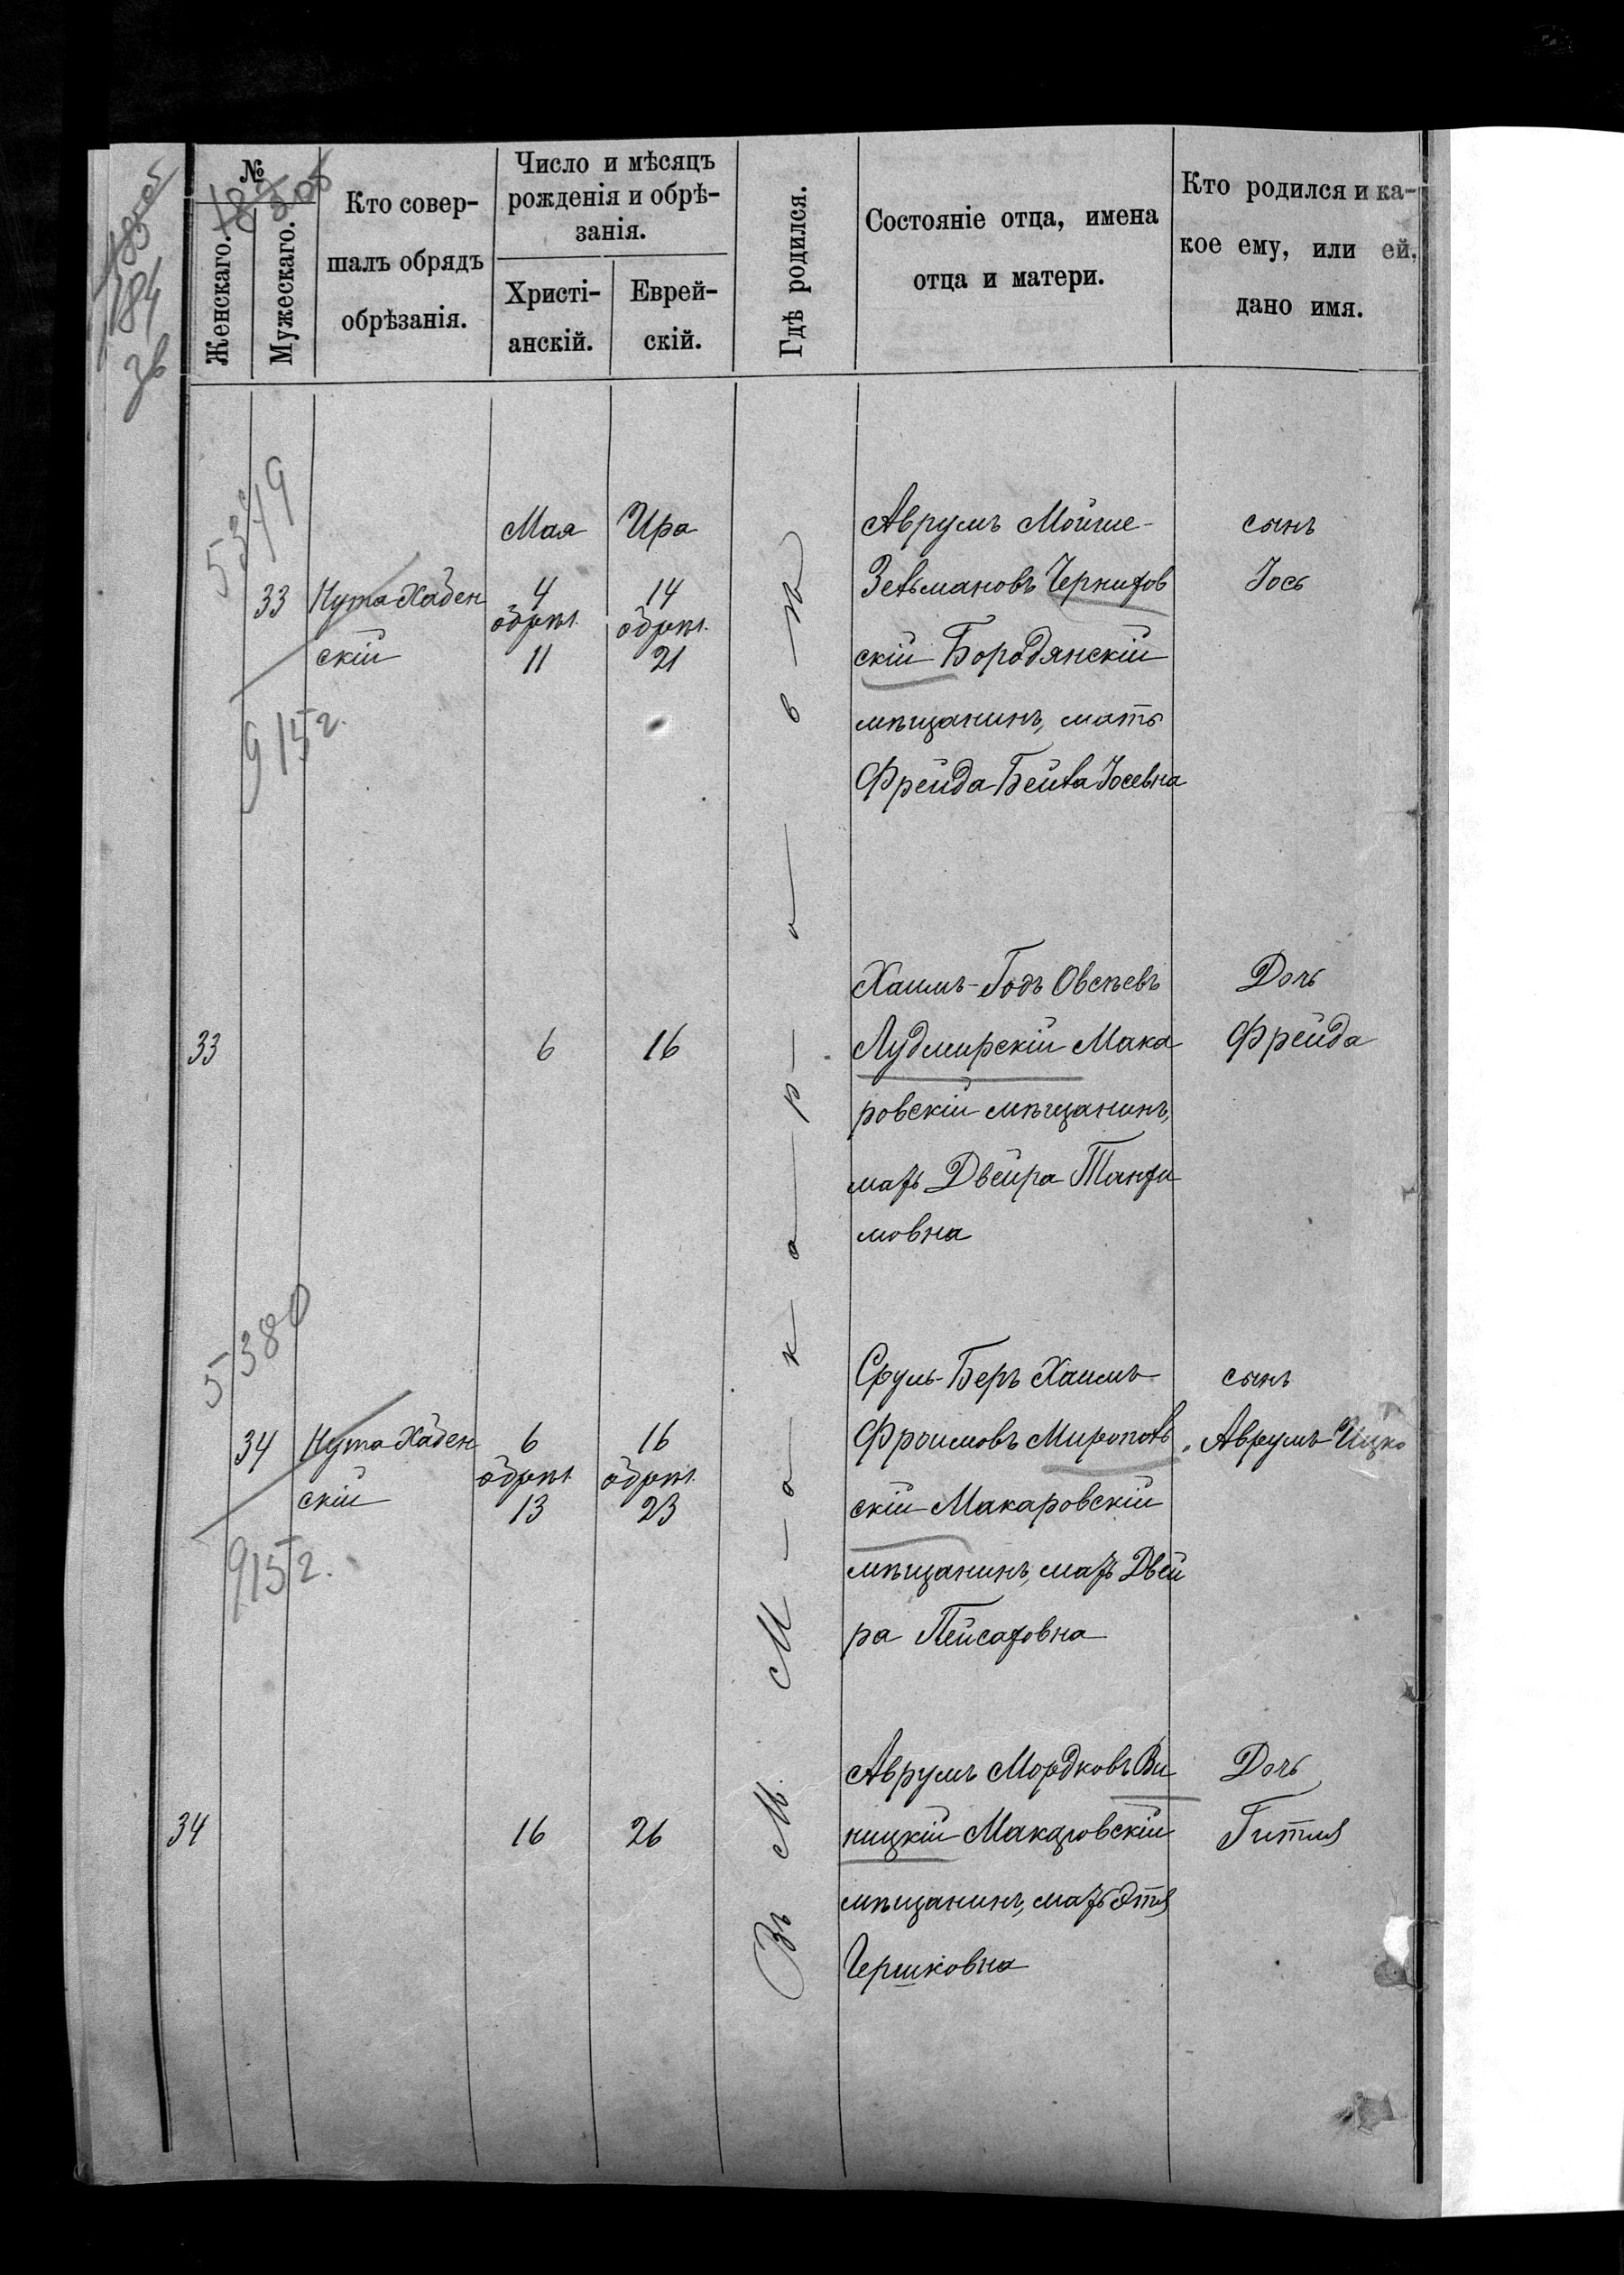 №
Женскаго.
Мужескаго.
Кто совер-
шалъ обрядъ
обрѣзанія.
Число и мѣсяцъ
рожденія и обрѣ-
занія.
Христі-
анскій.
Еврей-
скій.
Гдѣ родился.
Состояніе отца, имена
отца и матери.
Кто родился и ка-
кое ему, или ей,
дано имя.
184
Въ м. Макаровѣ
33
Нута Хаден
скій
Мая
4
обрѣз.
11
Ира
14
обрѣз.
21
Аврумъ Мойше-
Зельмановъ Чернихов
скій Бородянскій
мѣщанинъ, мать
Фрейда-Бейла Іосевна
сынъ
Іось
915 г.
33
6
16
Хаимъ-Годъ Овсѣевъ
Лудмирскій Мака
ровскій мѣщанинъ,
мать Двейра Танхи
мовна
Дочь
Фрейда
5380
34
Нута Хаден
скій
6
обрѣз.
13
16
обрѣз.
23
Сруль-Беръ Хаимъ-
Фроимовъ Мирополь
скій Макаровскій
мѣщанинъ, мать Двей
ра Пейсаховна
сынъ
Аврумъ-Ицко
915 г.
34
16
26
Аврумъ Мордковъ Ви
ницкій Макаровскій
мѣщанинъ, мать Этя
Гершковна
Дочь
Гитля